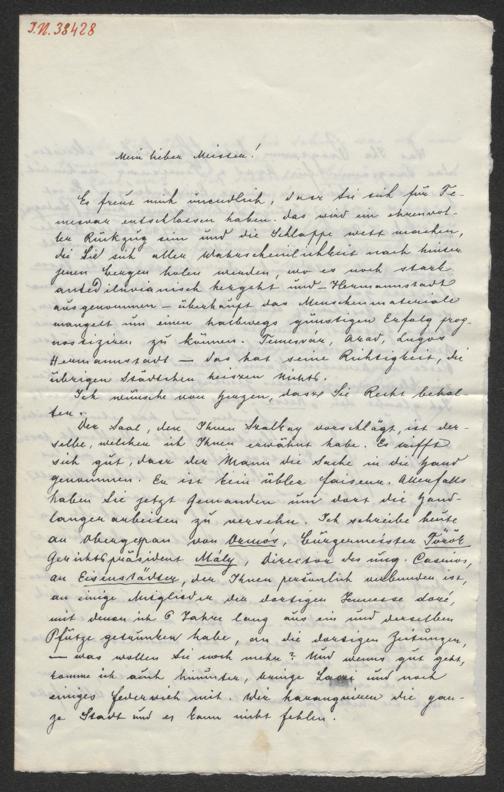 I.N. 38428
Mein lieber Meister!
Es freut mich unendlich, dasz Sie sich für Te-
mesvar entschlossen haben. das wird ein ehrenvol-
ler Rückzug sein und die Schlappe wett machen,
die Sie sich aller Wahrscheinlichkeit nach hinter
jenen Bergen holen werden, wo es noch stark
antediluvianisch hergeht und – Hermannstadt
ausgenommen – überhaupt das Menschenmateriale
mangelt um einen halbwegs günstigen Erfolg prog-
nosziren zu können. Temesvar, Arad, Lugos
Hermannstadt – das hat seine Richtigkeit, die
übrigen Städtchen heiszen nichts.
Ich wünsche von Herzen, dasz Sie Recht behal-
ten.
Der Saal, den Ihnen vorschlägt, ist der-
selbe, welchen ich Ihnen erwähnt habe. Es trifft
sich gut, dasz der Mann die Sache in die Hand
genommen. Er ist kein übler Faiseur. Allenfalls
haben Sie jetzt Jemanden um dort die Hand-
langerarbeiten zu versehn. Ich schreibe heute
an Obergespan von Ormos, Bürgermeister Török
Gerichtspräsident Mály, Director des ung. Casinos,
an Eisenstädter, der Ihnen persönlich verbunden ist,
an einige Mitglieder der dortigen Jeunesse doré,
mit denen ich 6 Jahre lang aus ein und derselben
Pfütze getrunken habe, an die dortigen Zeitungen,
– was wollen Sie noch mehr? Und wenns gut geht,
komme ich auch hinunter, bringe und noch
einiges Federvieh mit. Wir haranguiren die gan-
ze Stadt und es kann nicht fehlen.